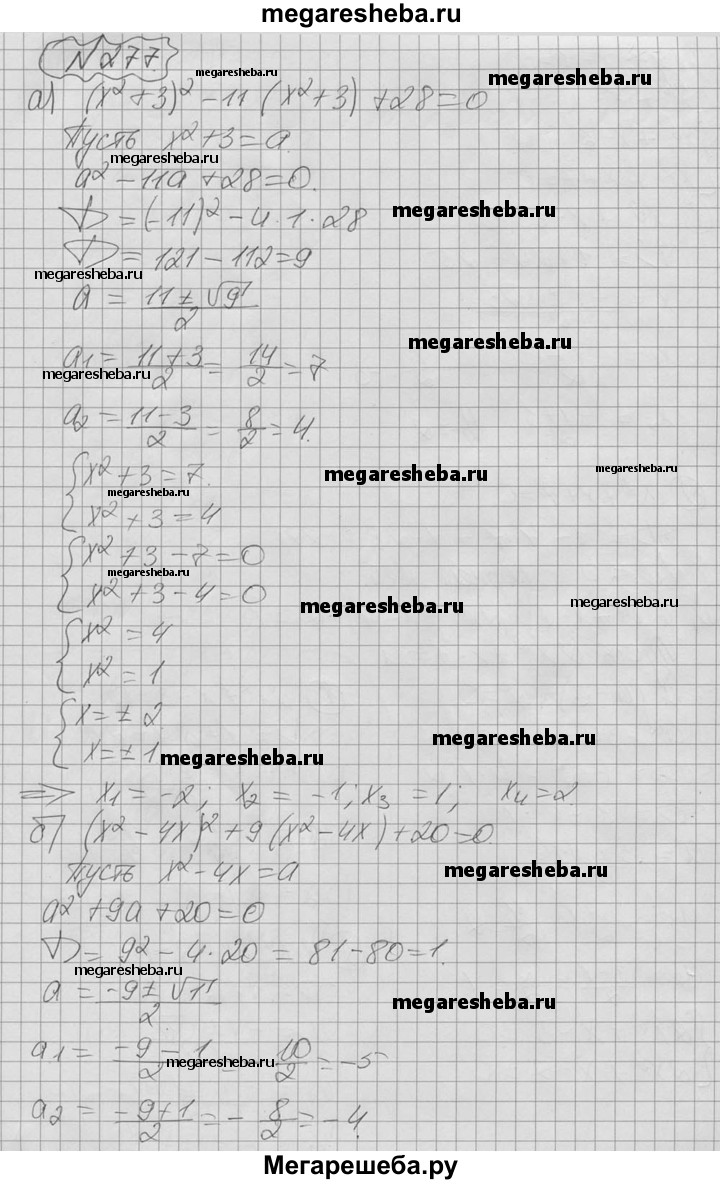 megaresheba.ru
N 277
megaresheba.ru
megaresheba.ru
а) (x² + 3)² - 11 (x² + 3) + 28 = 0
Пусть x² + 3 = a.
megaresheba.ru
a² - 11a + 28 = 0.
D = (-11)² - 4 · 1 · 28
megaresheba.ru
D = 121 - 112 = 9
megaresheba.ru
a = (11 ± √9)/2
megaresheba.ru
a₁ = (11 + 3)/2 = 14/2 = 7
megaresheba.ru
a₂ = (11 - 3)/2 = 8/2 = 4.
{ x² + 3 = 7.
megaresheba.ru
megaresheba.ru
megaresheba.ru
x² + 3 = 4
{ x² + 3 - 7 = 0
megaresheba.ru
x² + 3 - 4 = 0
megaresheba.ru
megaresheba.ru
{ x² = 4
x² = 1
{ x = ± 2
megaresheba.ru
x = ± 1
megaresheba.ru
=> x₁ = -2; x₂ = -1; x₃ = 1; x₄ = 2.
б) (x² - 4x)² + 9 (x² - 4x) + 20 = 0
Пусть x² - 4x = a
megaresheba.ru
a² + 9a + 20 = 0
D = 9² - 4 · 20 = 81 - 80 = 1.
megaresheba.ru
a = (-9 ± √1)/2
megaresheba.ru
a₁ = (-9 - 1)/2 10/2 = -5
megaresheba.ru
a₂ = (-9 + 1)/2 = - 8/2 = -4.
Мегарешеба.ру